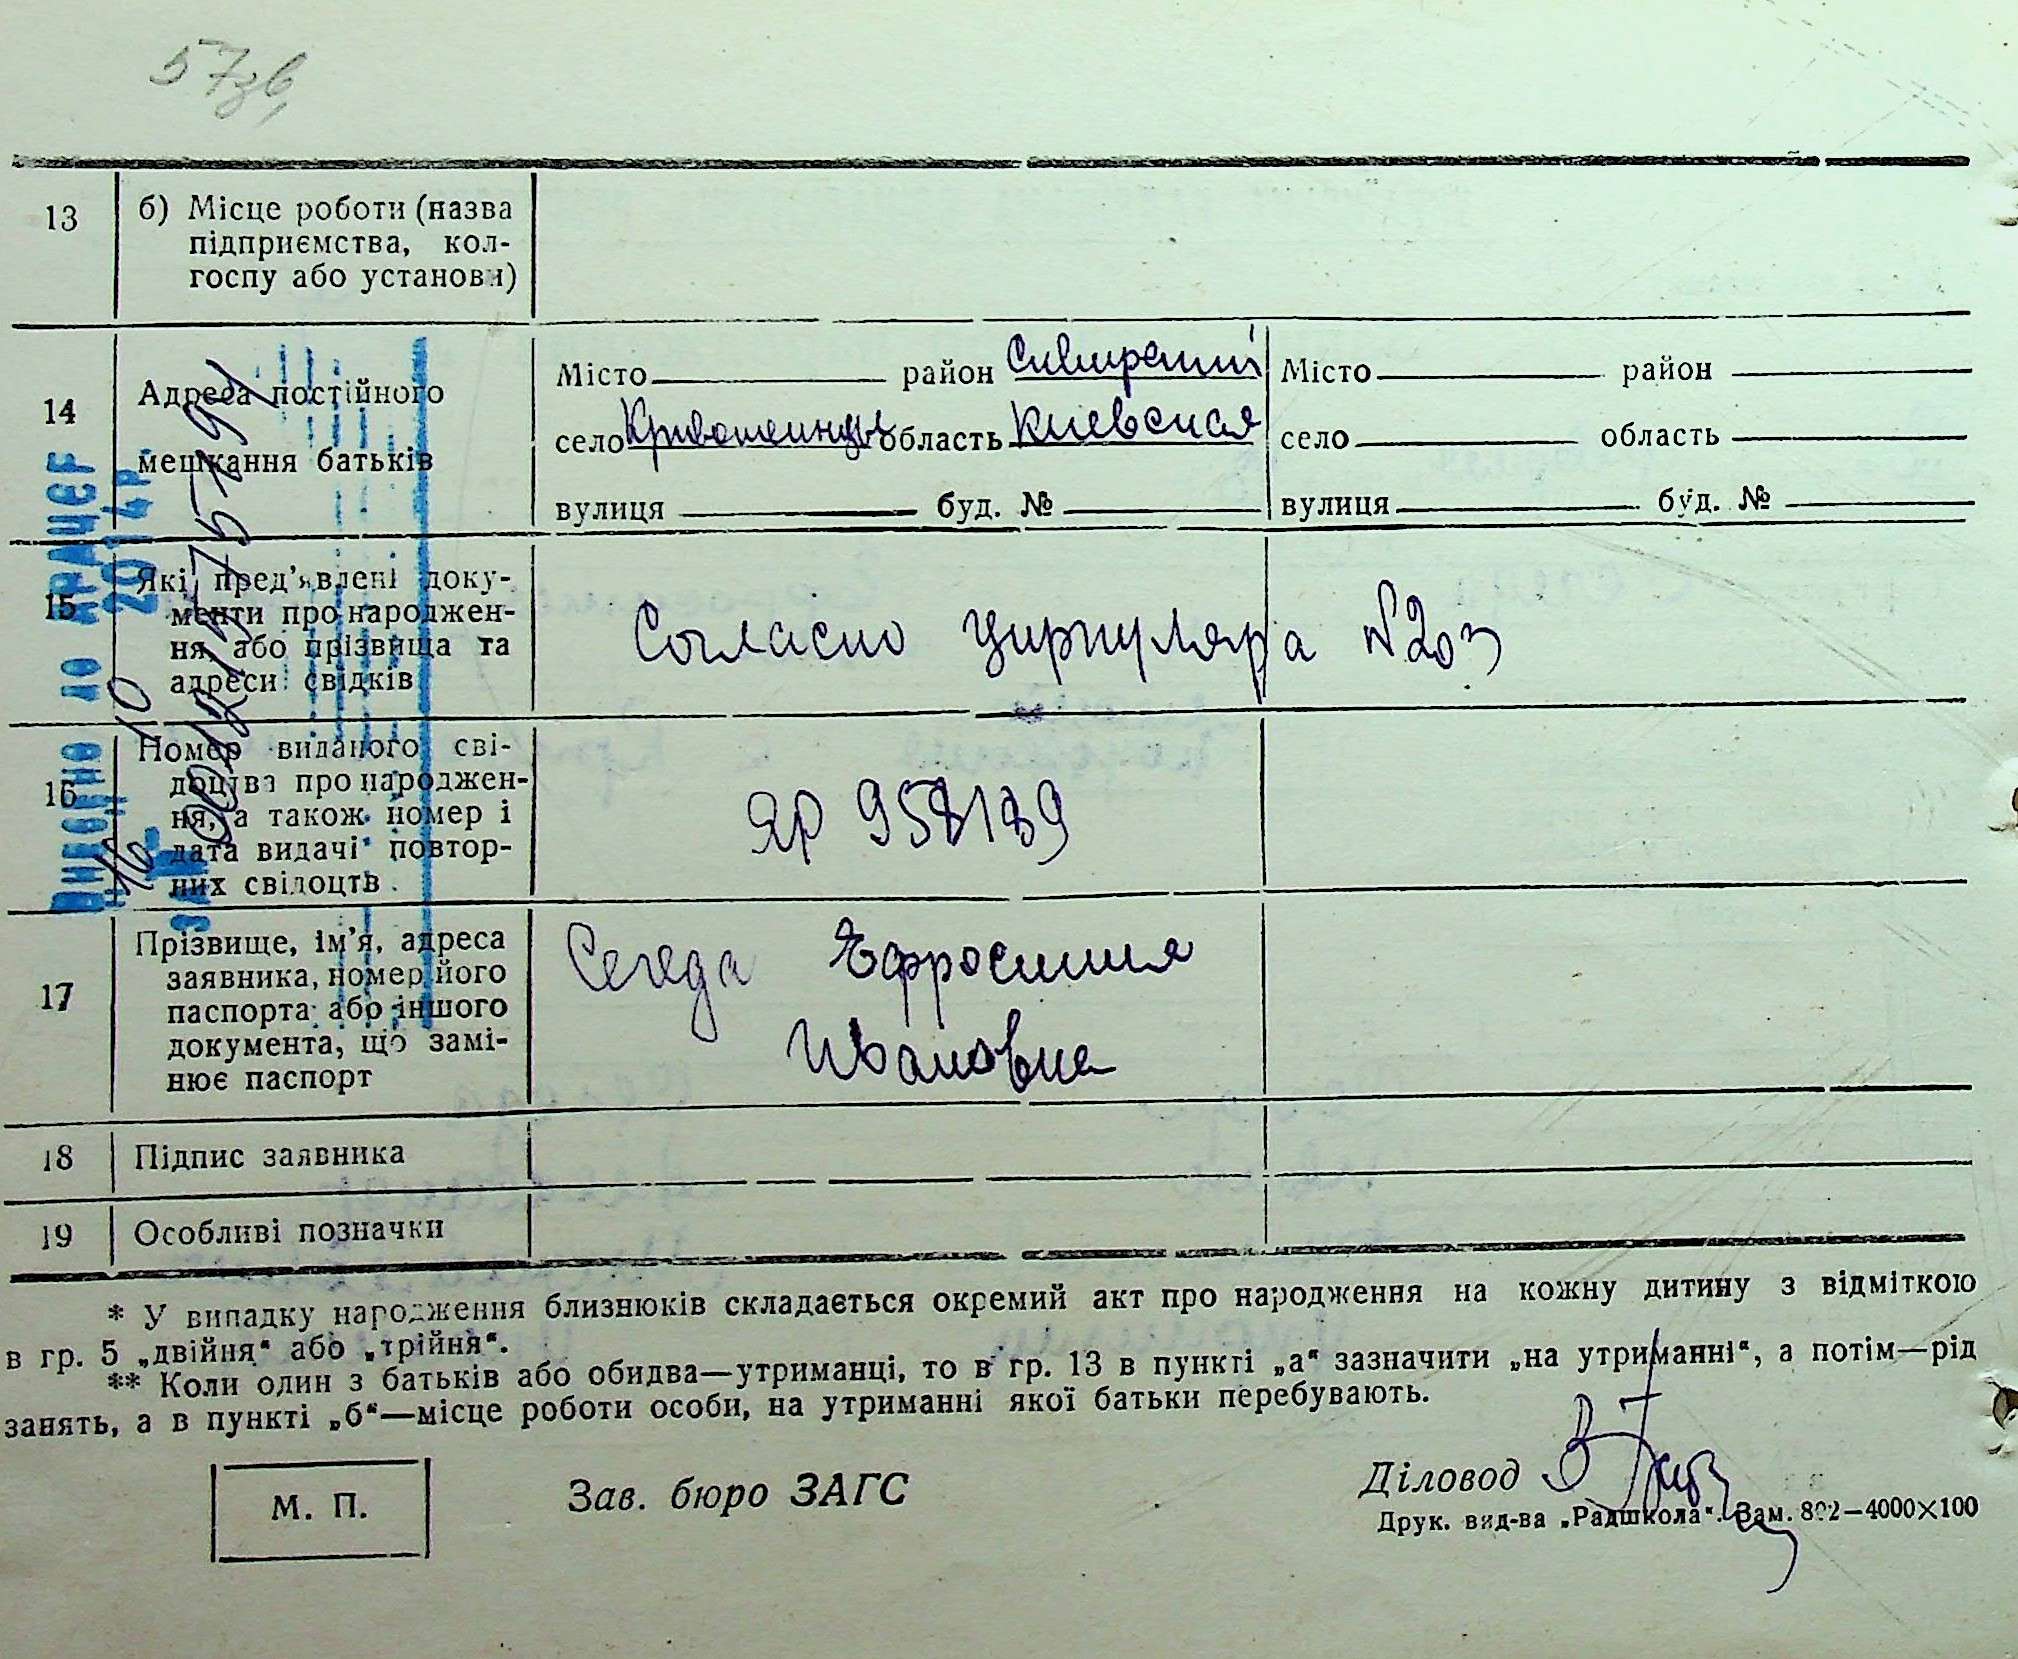 57зв
13 б) Місце роботи (назва
підприємства, кол-
госпу або установи)
14 Адреса постійного
мешкання батьків
Місто район Сквирский Місто район
село Кривошеинцы область Киевская село область
вулиця буд. № вулиця буд. №
15 Які пред'явлені доку-
менти про народжен-
ня, або прізвища та
адреси свідків
Согласно циркуляра №203
16 Номер виданого сві-
доцтва про народжен-
ня, а також номер і
дата видачі повтор-
них свідоцтв
ЯР 958189
17 Прізвище, ім'я, адреса
заявника, номер його
паспорта або іншого
документа, що замі-
нює паспорт
Сегеда Ефросиния
Ивановна
18 Підпис заявника
19 Особливі позначки
Внесено до ДРАЦСГ
16 10 2014 р.
ЗА № 00121775291
* У випадку народження близнюків складається окремий акт про народження на кожну дитину з відміткою
в гр. 5 „двійня“ або „трійня“.
** Коли один з батьків або обидва—утриманці, то в гр. 13 в пункті „а“ зазначити „на утриманні“, а потім—рід
занять, а в пункті „б“—місце роботи особи, на утриманні якої батьки перебувають.
М. П. Зав. бюро ЗАГС Діловод
Друк. вид-ва „Радшкола“. Зам. 802—4000×100